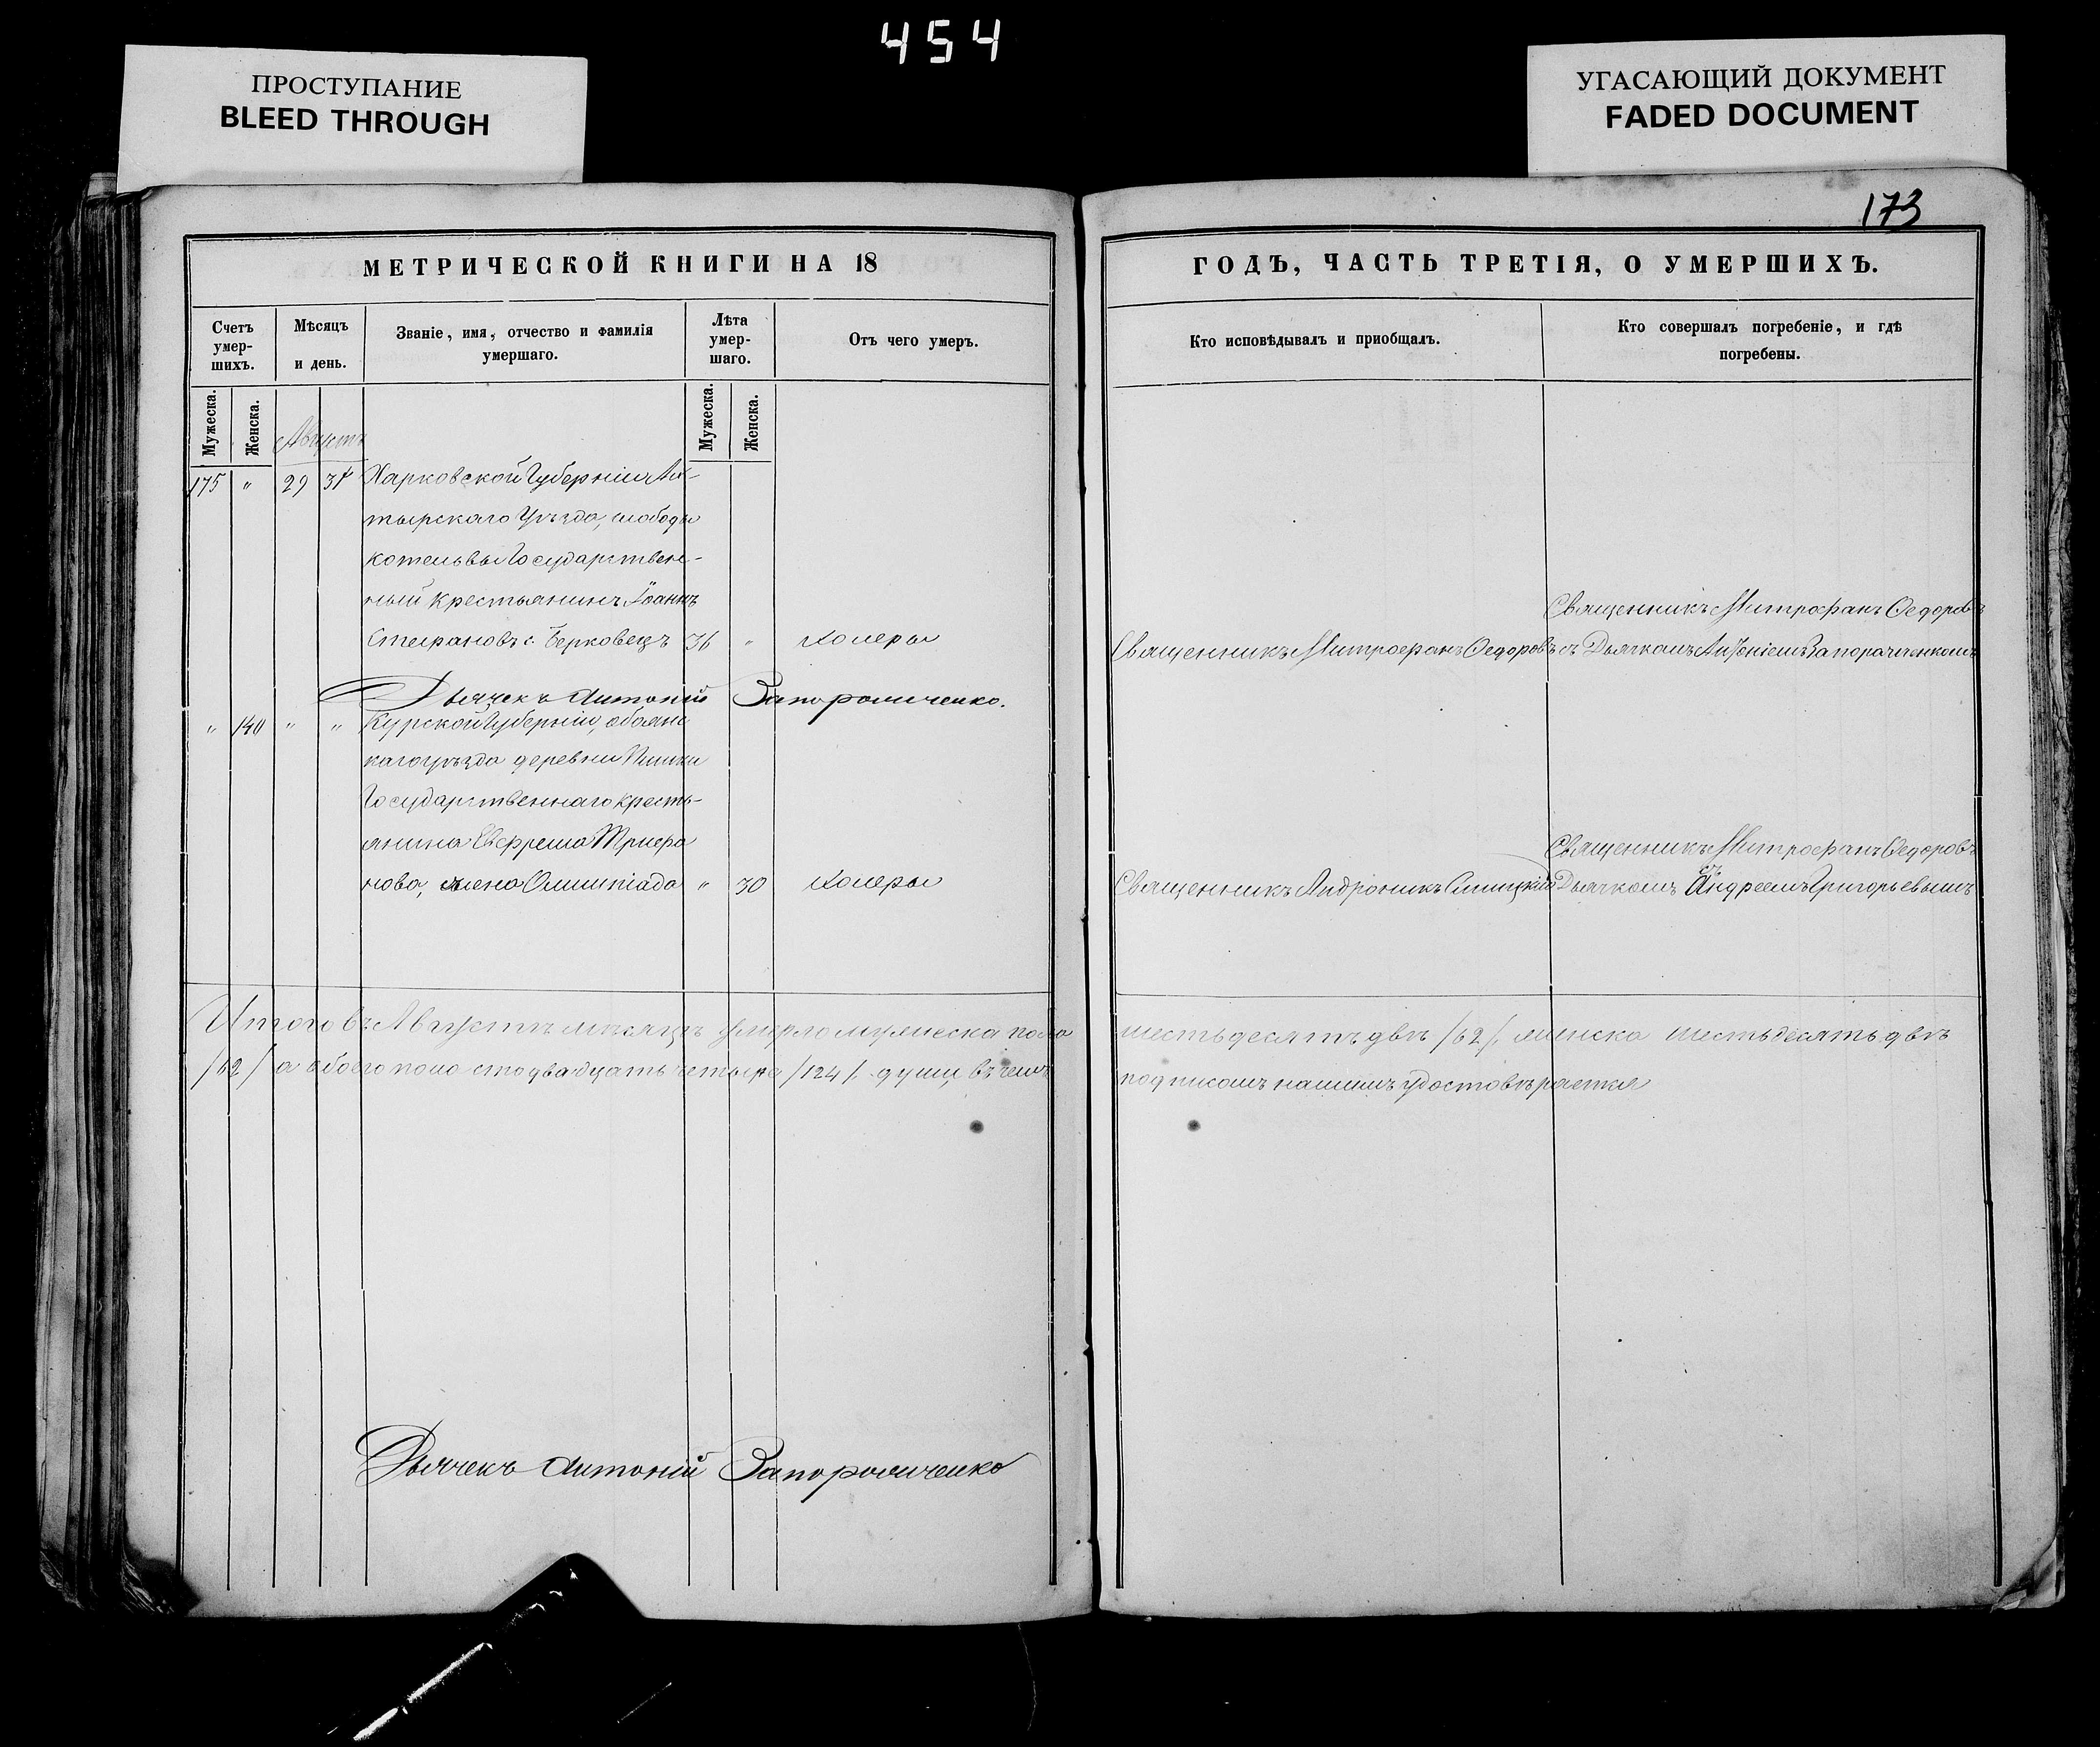 454
ПРОСТУПАНИЕ
BLEED THROUGH
УГАСАЮЩИЙ ДОКУМЕНТ
FADED DOCUMENT
173
МЕТРИЧЕСКОЙ КНИГИ НА 18
Счетъ умер-шихъ.
Мѣсяцъ и день.
Званіе, имя, отчество и фамилія умершаго.
Лѣта умер-шаго.
Отъ чего умеръ.
Мужеска.
Женска.
Мужеска.
Женска.
Августъ
175 " 29 31 Харковской Губерніи Ах-
тырскаго Уѣзда, слободы
Котельвы Государствен-
ный крестьянинъ Іоаннъ
Стефановъ с. Берковецъ 36 " Холеры
Дьячекъ Антоній Запорожченко.
" 140 " " Курской Губерніи, обоянс
каго уѣзда деревни
Государственнаго кресть-
янина Евфрема Трифо
нова, жена Олимпіада " 30 Холеры
Итого въ Августѣ мѣсяцѣ умерло мужеска пола
/62/ а обоего пола сто двадцать четыре /124/ души, въ чемъ
Дьячекъ Антоній Запорожченко
ГОДЪ, ЧАСТЬ ТРЕТІЯ, О УМЕРШИХЪ.
Кто исповѣдывалъ и пріобщалъ.
Кто совершалъ погребеніе, и гдѣ погребены.
Священникъ Митрофанъ Федоровъ
Священникъ Митрофанъ Федоровъ съ Дьячкомъ Антоніемъ Запорожченкомъ
Священникъ Митрофанъ Федоровъ
Священникъ Андроникъ съ Дьячкомъ Андреемъ Григорьевымъ
шестьдесятъ двѣ /62/, женска шестьдесятъ двѣ
подписомъ нашимъ удостовѣряется